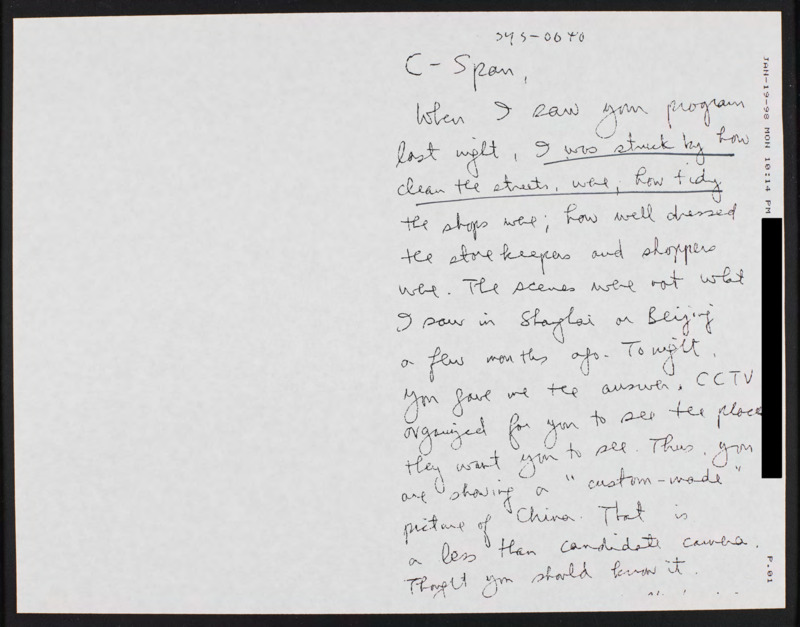 C-Span,
When I saw your program
last night, I was struck by how
clean the streets, were; how tidy
the shops were; how well dressed
the storekeepers and shoppers
were. The scenes were not what
I saw in Shanghai or Beijing
a few months ago. Tonight,
you gave me the answer. CCTV
organized for you to see the place
they want you to see. Thus, you
are showing a "custom-made"
picture of China. That is
a less than candidate camera.
Thought you should know it.
JAN-19-98 MON 10:14 PM
P.01